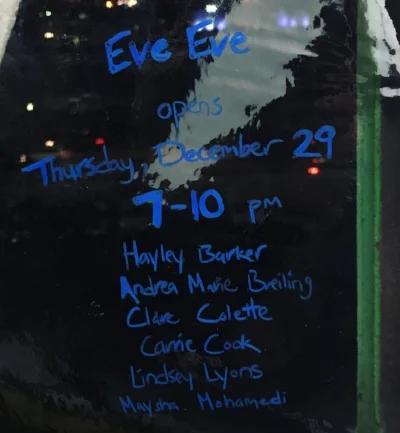 Eve Eve
opens
Thursday, December 29
7-10 pm
Hayley Barker
Andrea Marie Breiling
Clare Colette
Carrie Cook
Lindsey Lyons
Maysha Mohamedi